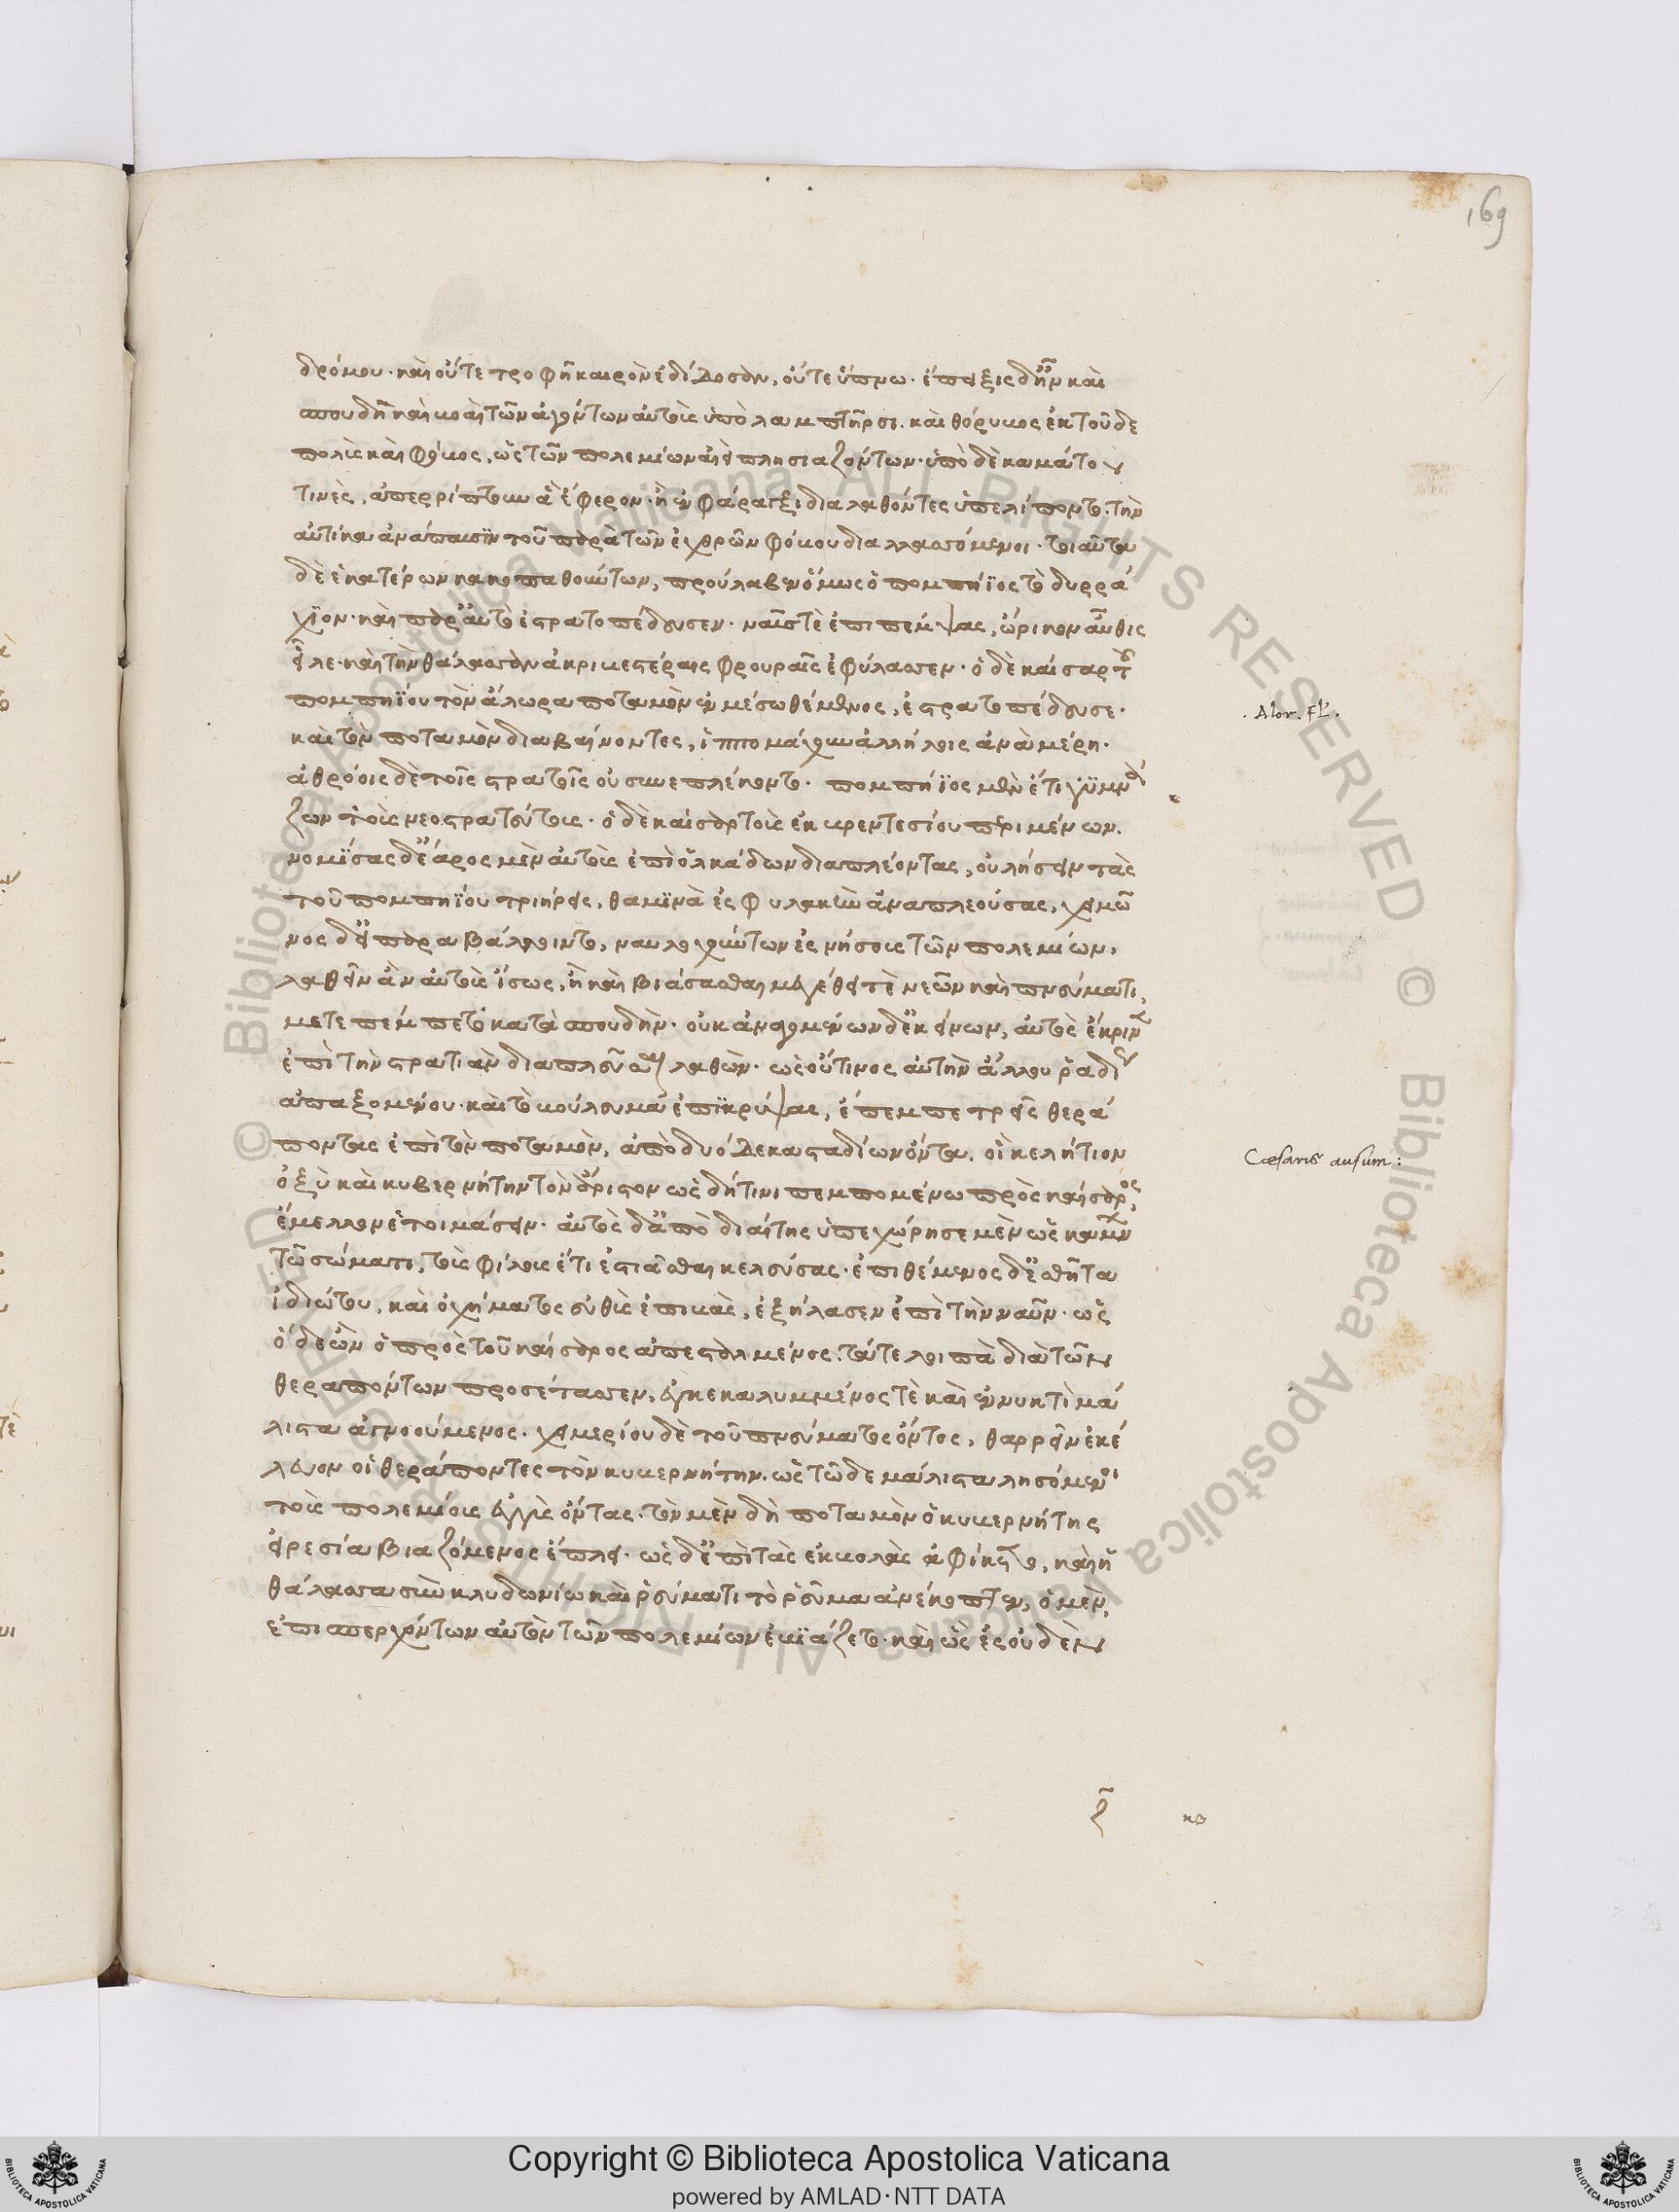 169
δρόμου· καὶ οὔτε τροφῇ καιρὸν ἐδίδοσαν, οὔτε ὕπνω. ἔπειξις δ' ἦν καὶ
σπουδὴ καὶ βοαὶ τῶν ἀγόντων αὐτοὺς ὑπὸ λαμπτῆρσι. καὶ θόρυβος ἐκ τοῦδε
πολὺς καὶ φόβος, ὡς τῶν πολεμίων ἀεὶ πλησιαζόντων. ὑπὸ δὲ καμάτου
τινὲς, ἀπερρίπτουν ἃ ἔφερον. ἢ ἐν φάραγξι διαλαθόντες ὑπελίποντο. τὴν
αὐτίκα ἀνάπαυσιν τοῦ παρὰ τῶν ἐχθρῶν φόβου διαλλασσόμενοι. τοιαῦτα
δὲ ἑκατέρων κακοπαθούντων, προύλαβεν ὅμως ὁ πομπήϊος τὸ δυρρά
χιον. καὶ παρ' αὐτὸ ἐστρατοπέδευσεν. ναῦς τὲ ἐπιπέμψας, ὤρικον αὖθις
εἷλε. καὶ τὴν θάλασσαν ἀκριβεστέραις φρουραῖς ἐφύλασσεν. ὁ δὲ καίσαρ τοῦ
πομπηΐου τὸν ἄλωρα ποταμὸν ἐν μέσω θέμενος, ἐστρατοπέδευσε.
. Alor. Fl.
καὶ τὸν ποταμὸν διαβαίνοντες, ἱππομάχουν ἀλλήλοις ἀνὰ μέρη.
ἀθρόοις δὲ τοῖς στρατοῖς οὐ συνεπλέκοντο. πομπήϊος μὲν ἔτι γυμνά
ζων τοὺς νεοστρατεύτους. ὁ δὲ καίσαρ τοὺς ἐκ βρεντεσίου περιμένων.
νομίσας δ' ἔαρος μὲν αὐτοὺς ἐπὶ ὁλκάδων διαπλέοντας, οὐ λήσειν τὰς
τοῦ πομπηΐου τριήρεις, θαμινὰ ἐς φυλακὴν ἀναπλεούσας, χειμῶ
νος δ' εἰ παραβάλλοιντο, ναυλοχούντων ἐς νήσους τῶν πολεμίων,
λαθεῖν ἂν αὐτοὺς ἴσως, ἢ καὶ βιάσασθαι μεγέθει τὲ νεῶν καὶ πνεύματι,
μετεπέμπετο κατὰ σπουδὴν. οὐκ ἀναγομένων δ' ἐκείνων, αὐτὸς ἔκρινεν
ἐπὶ τὴν στρατιὰν διαπλεῦσαι λαθὼν. ὡς οὔτινος αὐτὴν ἄλλου ῥαδίως
ἀπαξομένου. καὶ τὸ βούλευμα ἐπικρύψας, ἔπεμπε τρεῖς θερά
ποντας ἐπὶ τὸν ποταμὸν, ἀπὸ δυόδεκα σταδίων ὄντα, οἳ κελήτιον
Cæsaris ausum:
ὀξὺ καὶ κυβερνήτην τὸν ἄριστον ὡς δή τινι πεμπομένω πρὸς καίσαρος,
ἔμελλον ἑτοιμάσειν. αὐτὸς δ' ἀπὸ διαίτης ὑπεχώρησε μὲν ὡς κάμνων
τῶ σώματι, τοὺς φίλους ἔτι ἑστιᾶσθαι κελεύσας. ἐπιθέμενος δ' ἐσθῆτα
ἰδιώτου, καὶ ὀχήματος εὐθὺς ἐπιβὰς, ἐξήλασεν ἐπὶ τὴν ναῦν. ὡς
ὅδε ὢν ὁ πρὸς τοῦ καίσαρος ἀπεσταλμένος. τά τε λοιπὰ διὰ τῶν
θεραπόντων προσέτασσεν, ἐγκεκαλυμμένος τὲ καὶ ἐν νυκτὶ μά
λιστα ἀγνοούμενος. χειμερίου δὲ τοῦ πνεύματος ὄντος, θαρρεῖν ἐκέ
λευον οἱ θεράποντες τὸν κυβερνήτην. ὡς τῶδε μάλιστα λησόμενοι
τοὺς πολεμίους ἐγγὺς ὄντας. τὸν μὲν δὴ ποταμὸν ὁ κυβερνήτης
εἰρεσία βιαζόμενος ἔπλει. ὡς δ' ἐπὶ τὰς ἐκβολὰς ἀφίκετο, καὶ ἡ
θάλασσα σὺν κλυδωνίω καὶ πνεύματι τὸ ῥεῦμα ἀνέκοπτεν, ὁ μὲν,
ἐπισπερχόντων αὐτὸν τῶν πολεμίων ἐβιάζετο. καὶ ὡς ἐς οὐδὲν
Copyright © Biblioteca Apostolica Vaticana
powered by AMLAD·NTT DATA